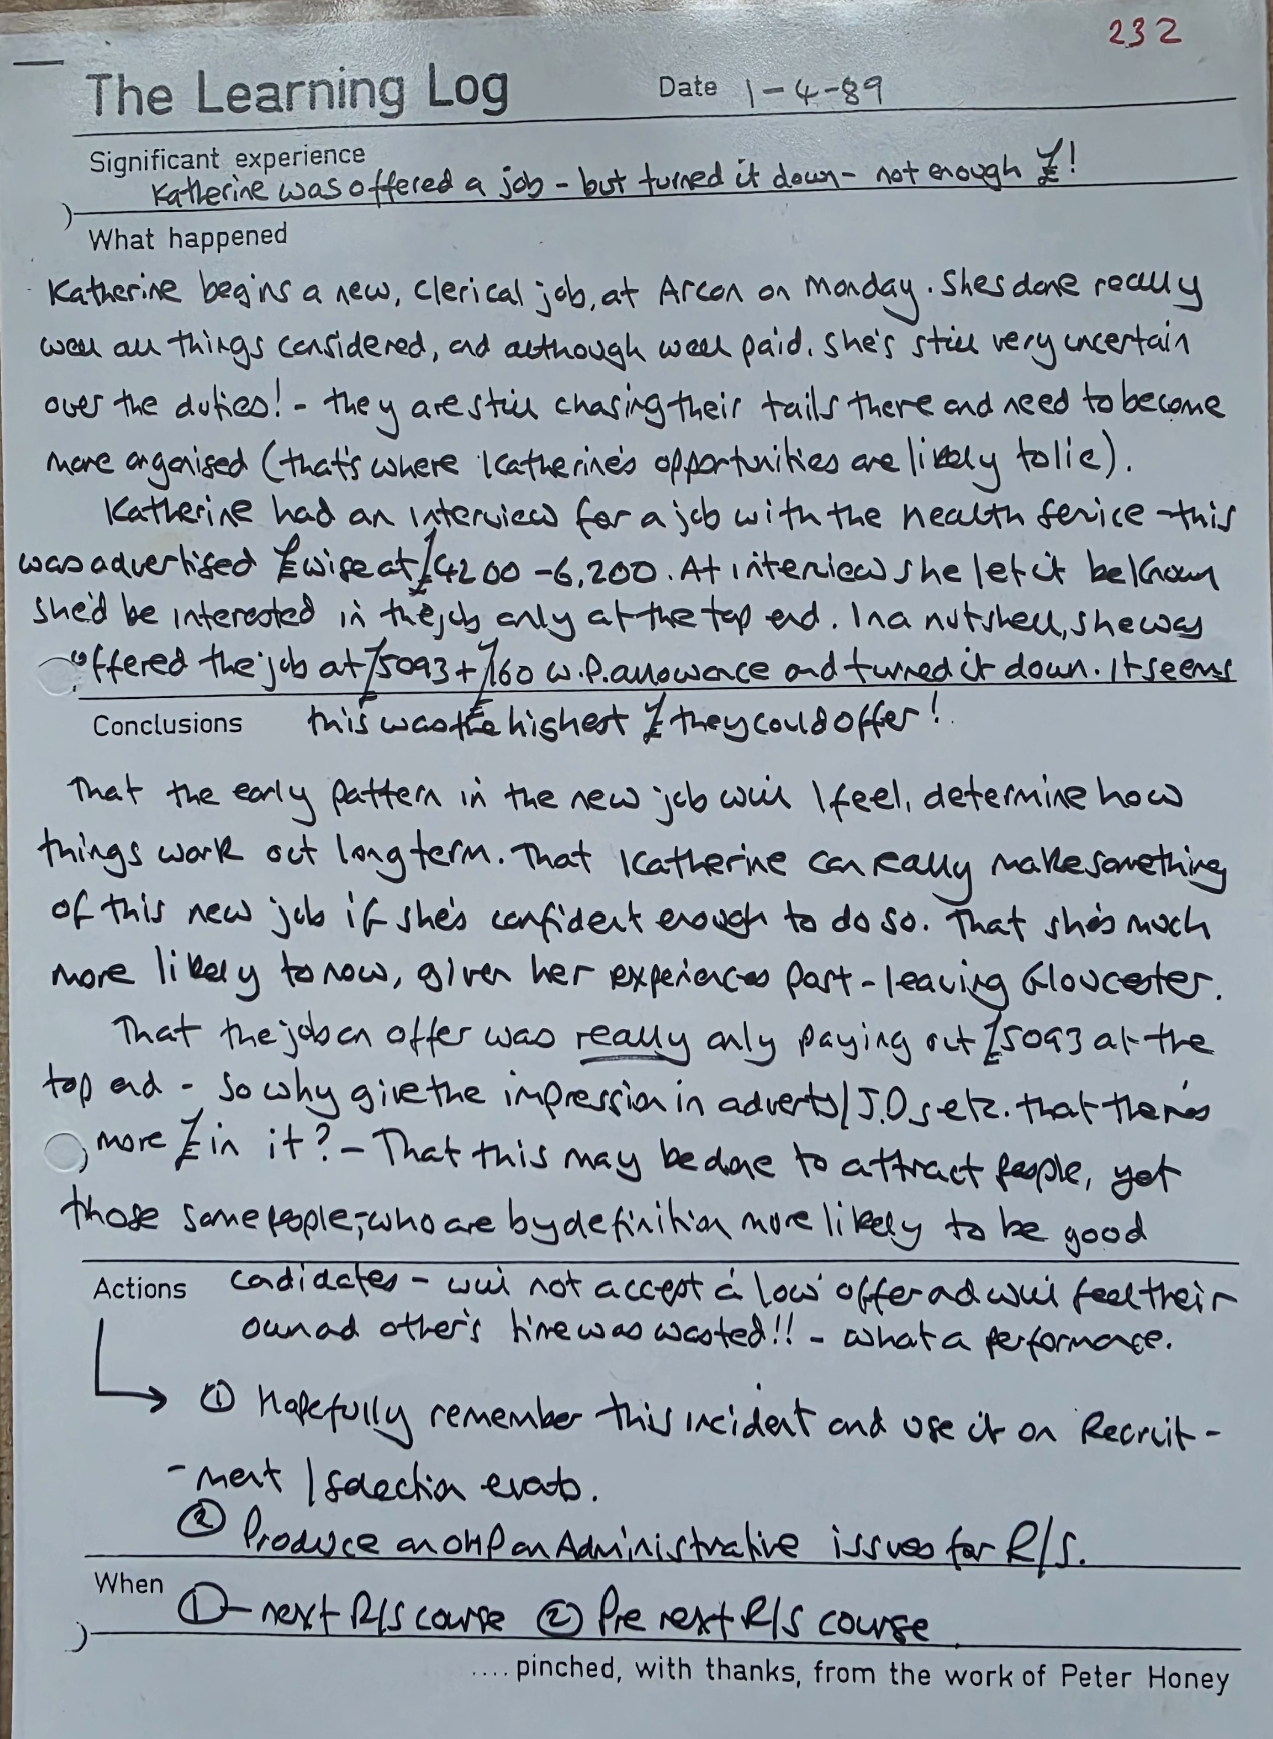 232
The Learning Log
Date 1-4-89
Significant experience
Katherine was offered a job - but turned it down - not enough £!
What happened
Katherine begins a new, clerical job, at Arcon on Monday. Shes done really
well all things considered, and although well paid, she's still very uncertain
over the duties! - they are still chasing their tails there and need to become
more organised (that's where Katherine's opportunities are likely to lie).
Katherine had an interview for a job with the health service - this
was advertised £wise at £4200 - 6,200. At interview she let it be known
she'd be interested in the job only at the top end. In a nutshell, she was
offered the job at £5093 + £160 w.p. allowance and turned it down. It seems
this was the highest £ they could offer!
Conclusions
That the early pattern in the new job will I feel, determine how
things work out long term. That Katherine can really make something
of this new job if she's confident enough to do so. That she's much
more likely to now, given her experiences part-leaving Gloucester.
That the job on offer was really only paying out £5093 at the
top end - so why give the impression in adverts/J.Ds etc. that there's
more £ in it? - That this may be done to attract people, yet
those same people,-who are by definition more likely to be good
candidates - will not accept a 'low' offer and will feel their
own and other's time was wasted!! - what a performance.
Actions
① Hopefully remember this incident and use it on Recruit-
-ment / selection events.
② Produce an OHP on Administrative issues for R/S.
When
① - next R/S course ② Pre next R/S course
.... pinched, with thanks, from the work of Peter Honey